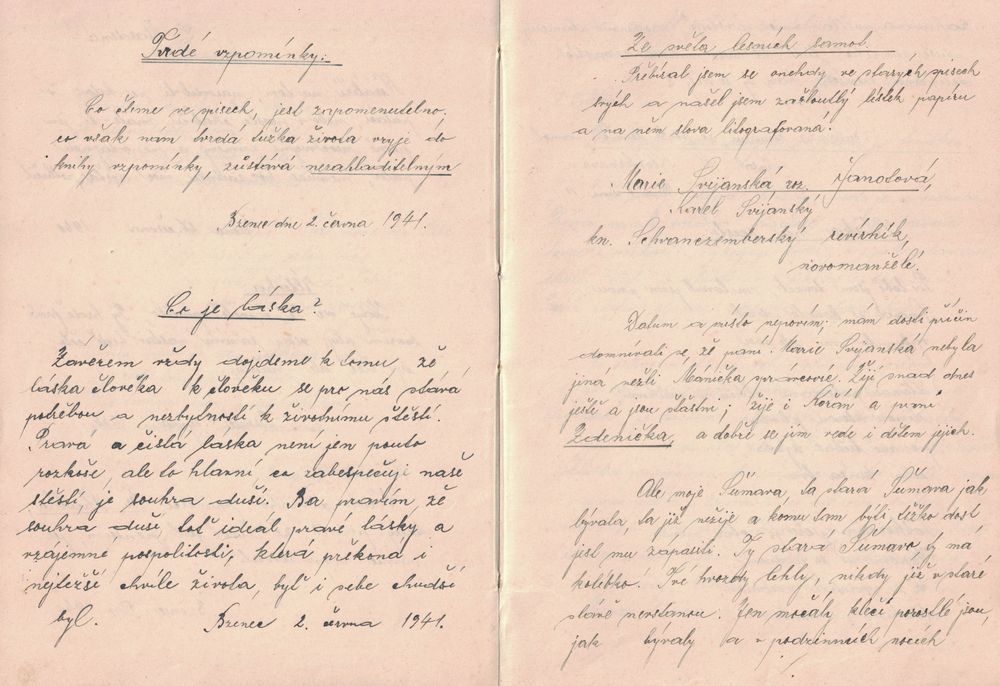 Tvrdé vzpomínky:
Co čteme ve spisech, jest zapomenutelno.
co však nám tvrdá tužka života vryje do
knihy vzpomínky, zůstává nezahladitelným
Bzenec dne 2. června 1941.
Co je láska?
Závěrem vždy dojdeme k tomu, že
láska člověka k člověku se pro nás stává
potřebou a nezbytností k životnímu štěstí.
Pravá a čistá láska není jen pouto
rozkoše, ale to hlavní co zabespečuje naše
štěstí, je souhra duší. Ba pravím že
souhra duší, toť ideál pravé lásky a
vzájemné pospolitosti, která překoná i
nejtežší chvíle života, byť i sebe chudší
byl.
Bzenec 2. června 1941.
Ze světa lesních samot.
Přebíral jsem se onehdy ve starých spisech
svých a našel jsem zažloutlý lístek papíru
a na něm slova litografovaná:
Marie Svijanská roz. Janotova,
Karel Svijánský
kn. Schvarczemberský revírník,
novomanželé.
Datum a místo nepovím; mám dosti příčin
domnívati se, že paní Marie Svijanská nebyla
jiná nežli Mánička správcovic. Žijí snad dnes
ještě a jsou šťastni; žije i Kořán a paní
Zdenička, a dobře se jím vede i dětem jejich.
Ale moje Šumava, ta stará Šumava jak
bývala, ta již nežije a komu tam býti, těžko dost
jest mu zápasiti. Ty stará Šumavo, ty má
kolébko! Tvé hvozdy lehly, nikdy již v staré
slávě nevstanou. Jen močály klečí porostlé jsou,
jak bývaly a v podzimních nocích